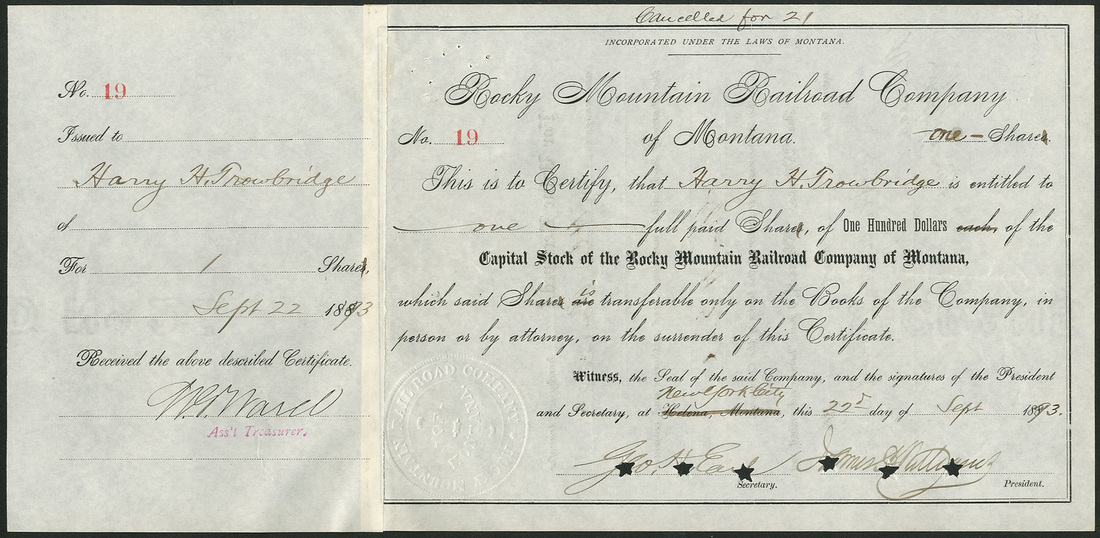 Cancelled for 21
No. 19
Issued to
Harry H. Trowbridge
of
For 1 Shares,
Sept 22 1893
Received the above described Certificate.
Ass't Treasurer.
INCORPORATED UNDER THE LAWS OF MONTANA.
Rocky Mountain Railroad Company
No. 19 of Montana. one Shares.
This is to Certify, that Harry H. Trowbridge is entitled to
one full paid Shares, of One Hundred Dollars each, of the
Capital Stock of the Rocky Mountain Railroad Company of Montana,
which said Shares are is transferable only on the Books of the Company, in
person or by attorney, on the surrender of this Certificate.
Witness, the Seal of the said Company, and the signatures of the President
New York City
and Secretary, at Helena, Montana, this 22d day of Sept 1893.
Geo. H. Earl
Secretary. President.